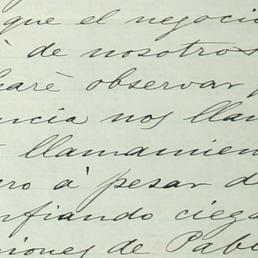 que el negocio
à de nosotros
caré observar
ncia nos llam
llamamien
ero à pesar d
nfiando ciega
iones de Pab